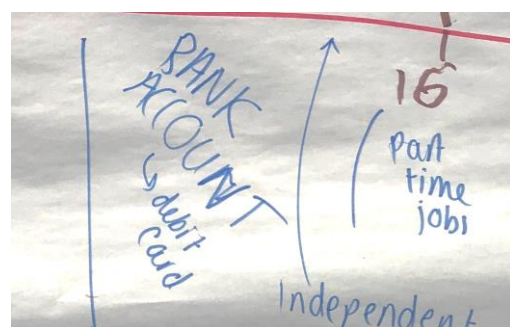 BANK
ACCOUNT
↳ debit
card
16
part
time
jobs
Independent